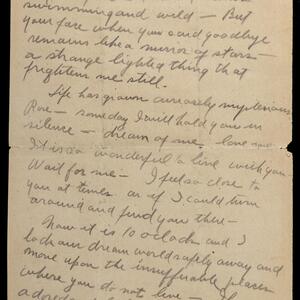 swimming and wild — But
your face when you said goodbye
remains like a mirror of stars —
a strange lighted thing that
frightens me still.
Life has grown curiously mysterious
Rose — someday I will hold you in
silence — dream of me — love me
It is so wonderful to live with you
Wait for me — I feel so close to
you at times as if I could turn
around and find you there —
Now it is 10 o'clock and I
lock our dream world safely away and
move upon the insufferable places
where you do not live —